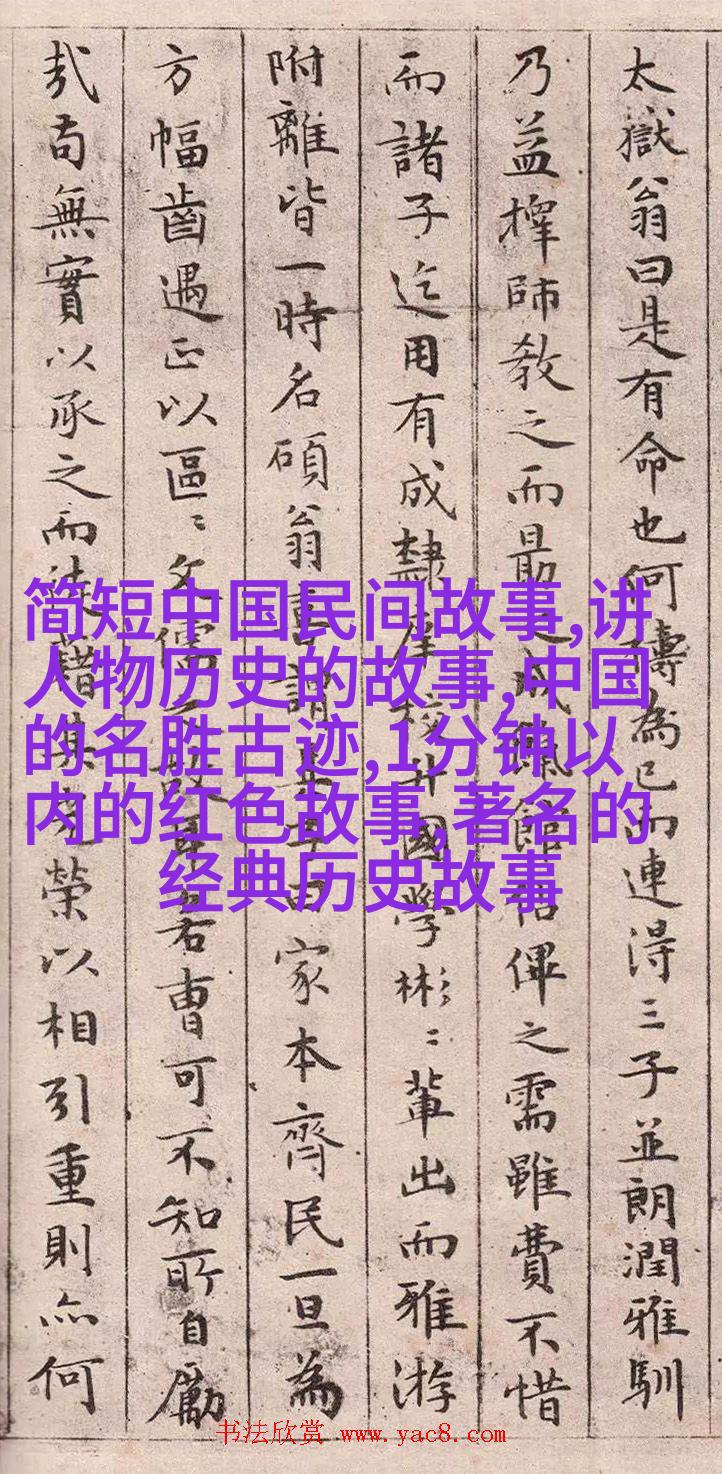 太嶽翁曰是有命也何為已而連得三子並朗潤雅馴
乃益擇師教之而最成館俾之需雖費不惜
而諸子迄用有成隸校升國學彬〻輩出而雅游
附離皆一時名碩翁謂曰家本齊民一旦為
方幅齒遇正以區〻文儒若曹可不知所自勵
哉苟無實以承之而徒藉其榮以相引重則亦何
简短中国民间故事,讲
人物历史的故事,中国
的名胜古迹,1分钟以
内的红色故事,著名的
经典历史故事
书法欣赏 www.yac8.com